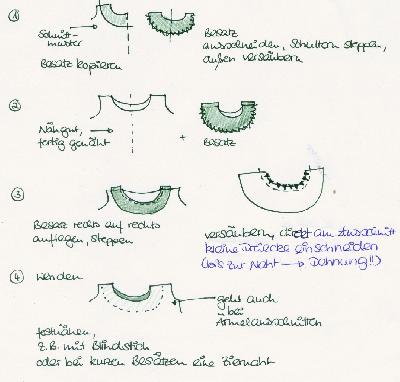 ①
Schnitt-
muster
Besatz kopieren
Besatz
ausschneiden, Schultern steppen,
außen versäubern
②
Nähgut,
fertig genäht
+
Besatz
③
Besatz rechts auf rechts
auflegen, steppen
versäubern, direkt am Ausschnitt
kleine Dreiecke einschneiden
(bis zur Naht → Dehnung!!)
④ wenden
geht auch
bei
Armelausschnitten
festnähen,
z.B. mit Blindstich
oder bei kurzen Besätzen eine Ziernaht